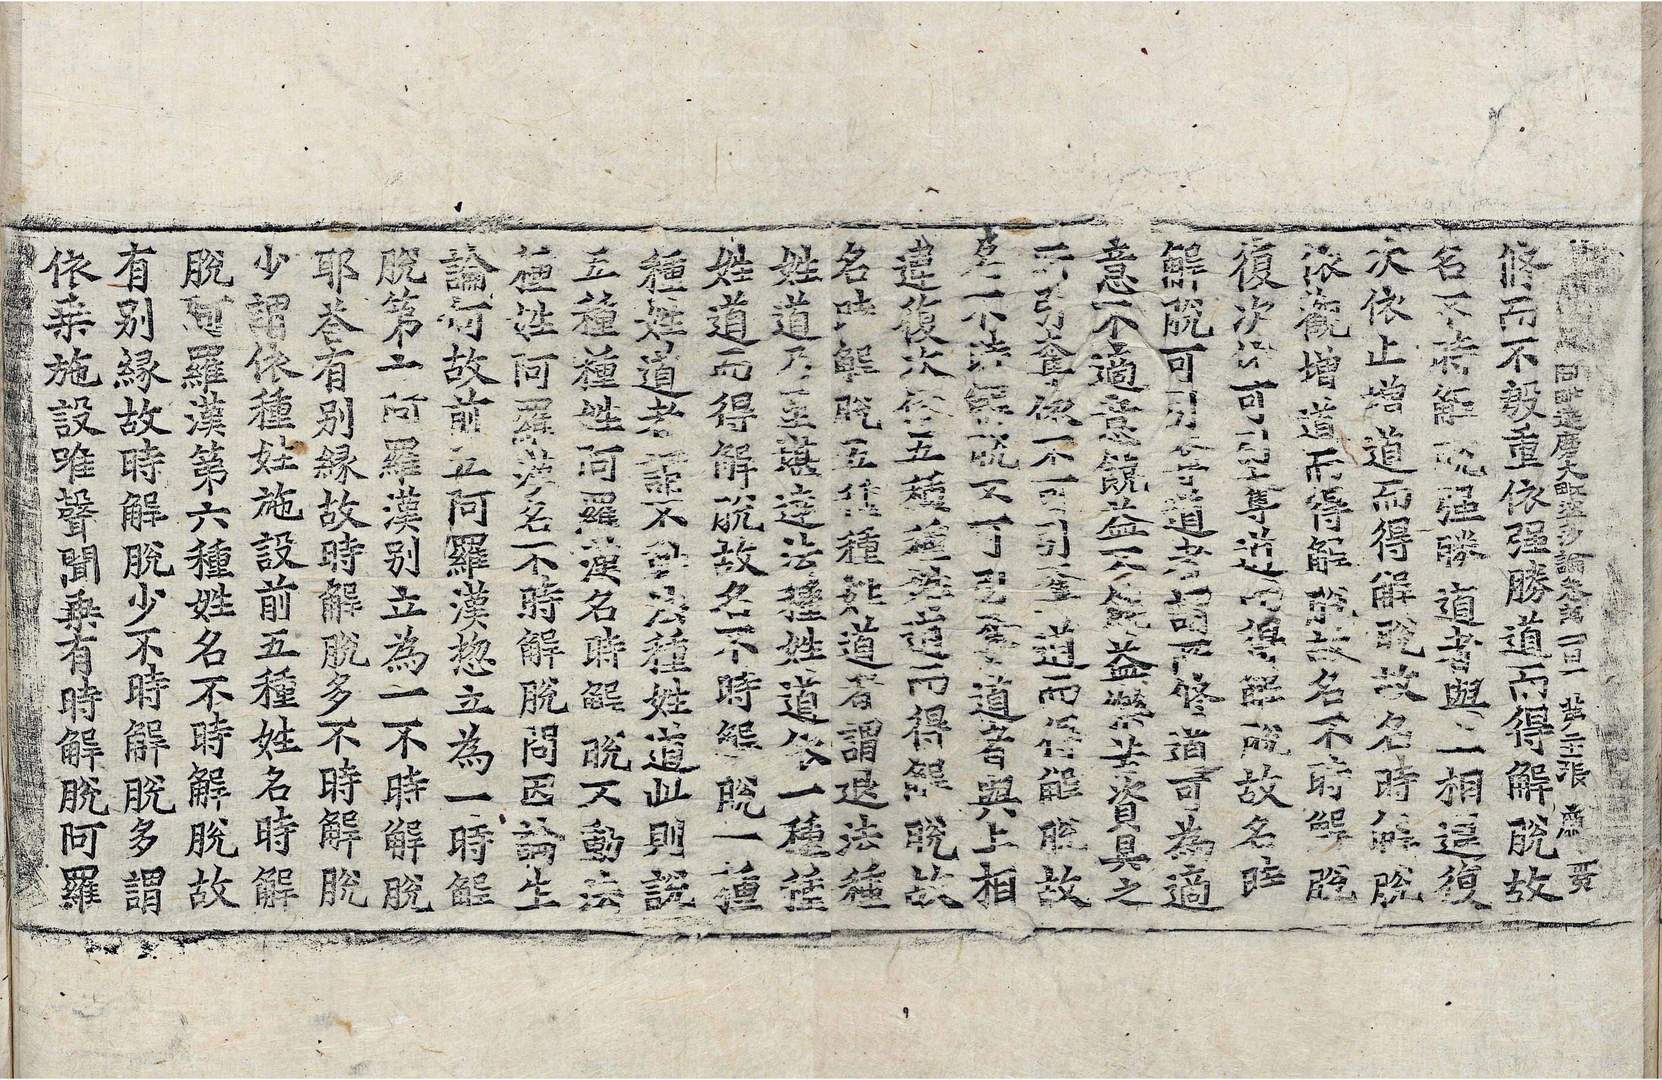 阿毗達磨大毗婆沙論卷第一百一 第三張
修而不毀重依强勝道而得解脫故
名不時解脫强勝道者與上相違復
次依止增道而得解脫故名時解脫
依觀增道而得解脫故名不時解脫
復次依可引奪道而得解脫故名時
解脫可引奪道者謂所修道可為適
意不適意饒益不饒益樂苦資具之
所引奪依不可引奪道而得解脫故
名不時解脫不可引奪道者與上相
違復次依五種種姓道而得解脫故
名時解脫五種種姓道者謂退法種
姓道乃至堪達法種姓道依一種種
姓道而得解脫故名不時解脫一種
種姓道者謂不動法種姓道此則說
五種種姓阿羅漢名時解脫不動法
種姓阿羅漢名不時解脫問因論生
論何故前五阿羅漢惣立為一時解
脫第六阿羅漢别立為一不時解脫
耶荅有别緣故時解脫多不時解脫
少謂依種姓施設前五種姓名時解
脫阿羅漢第六種姓名不時解脫故
有别緣故時解脫少不時解脫多謂
依乗施設唯聲聞乗有時解脫阿羅